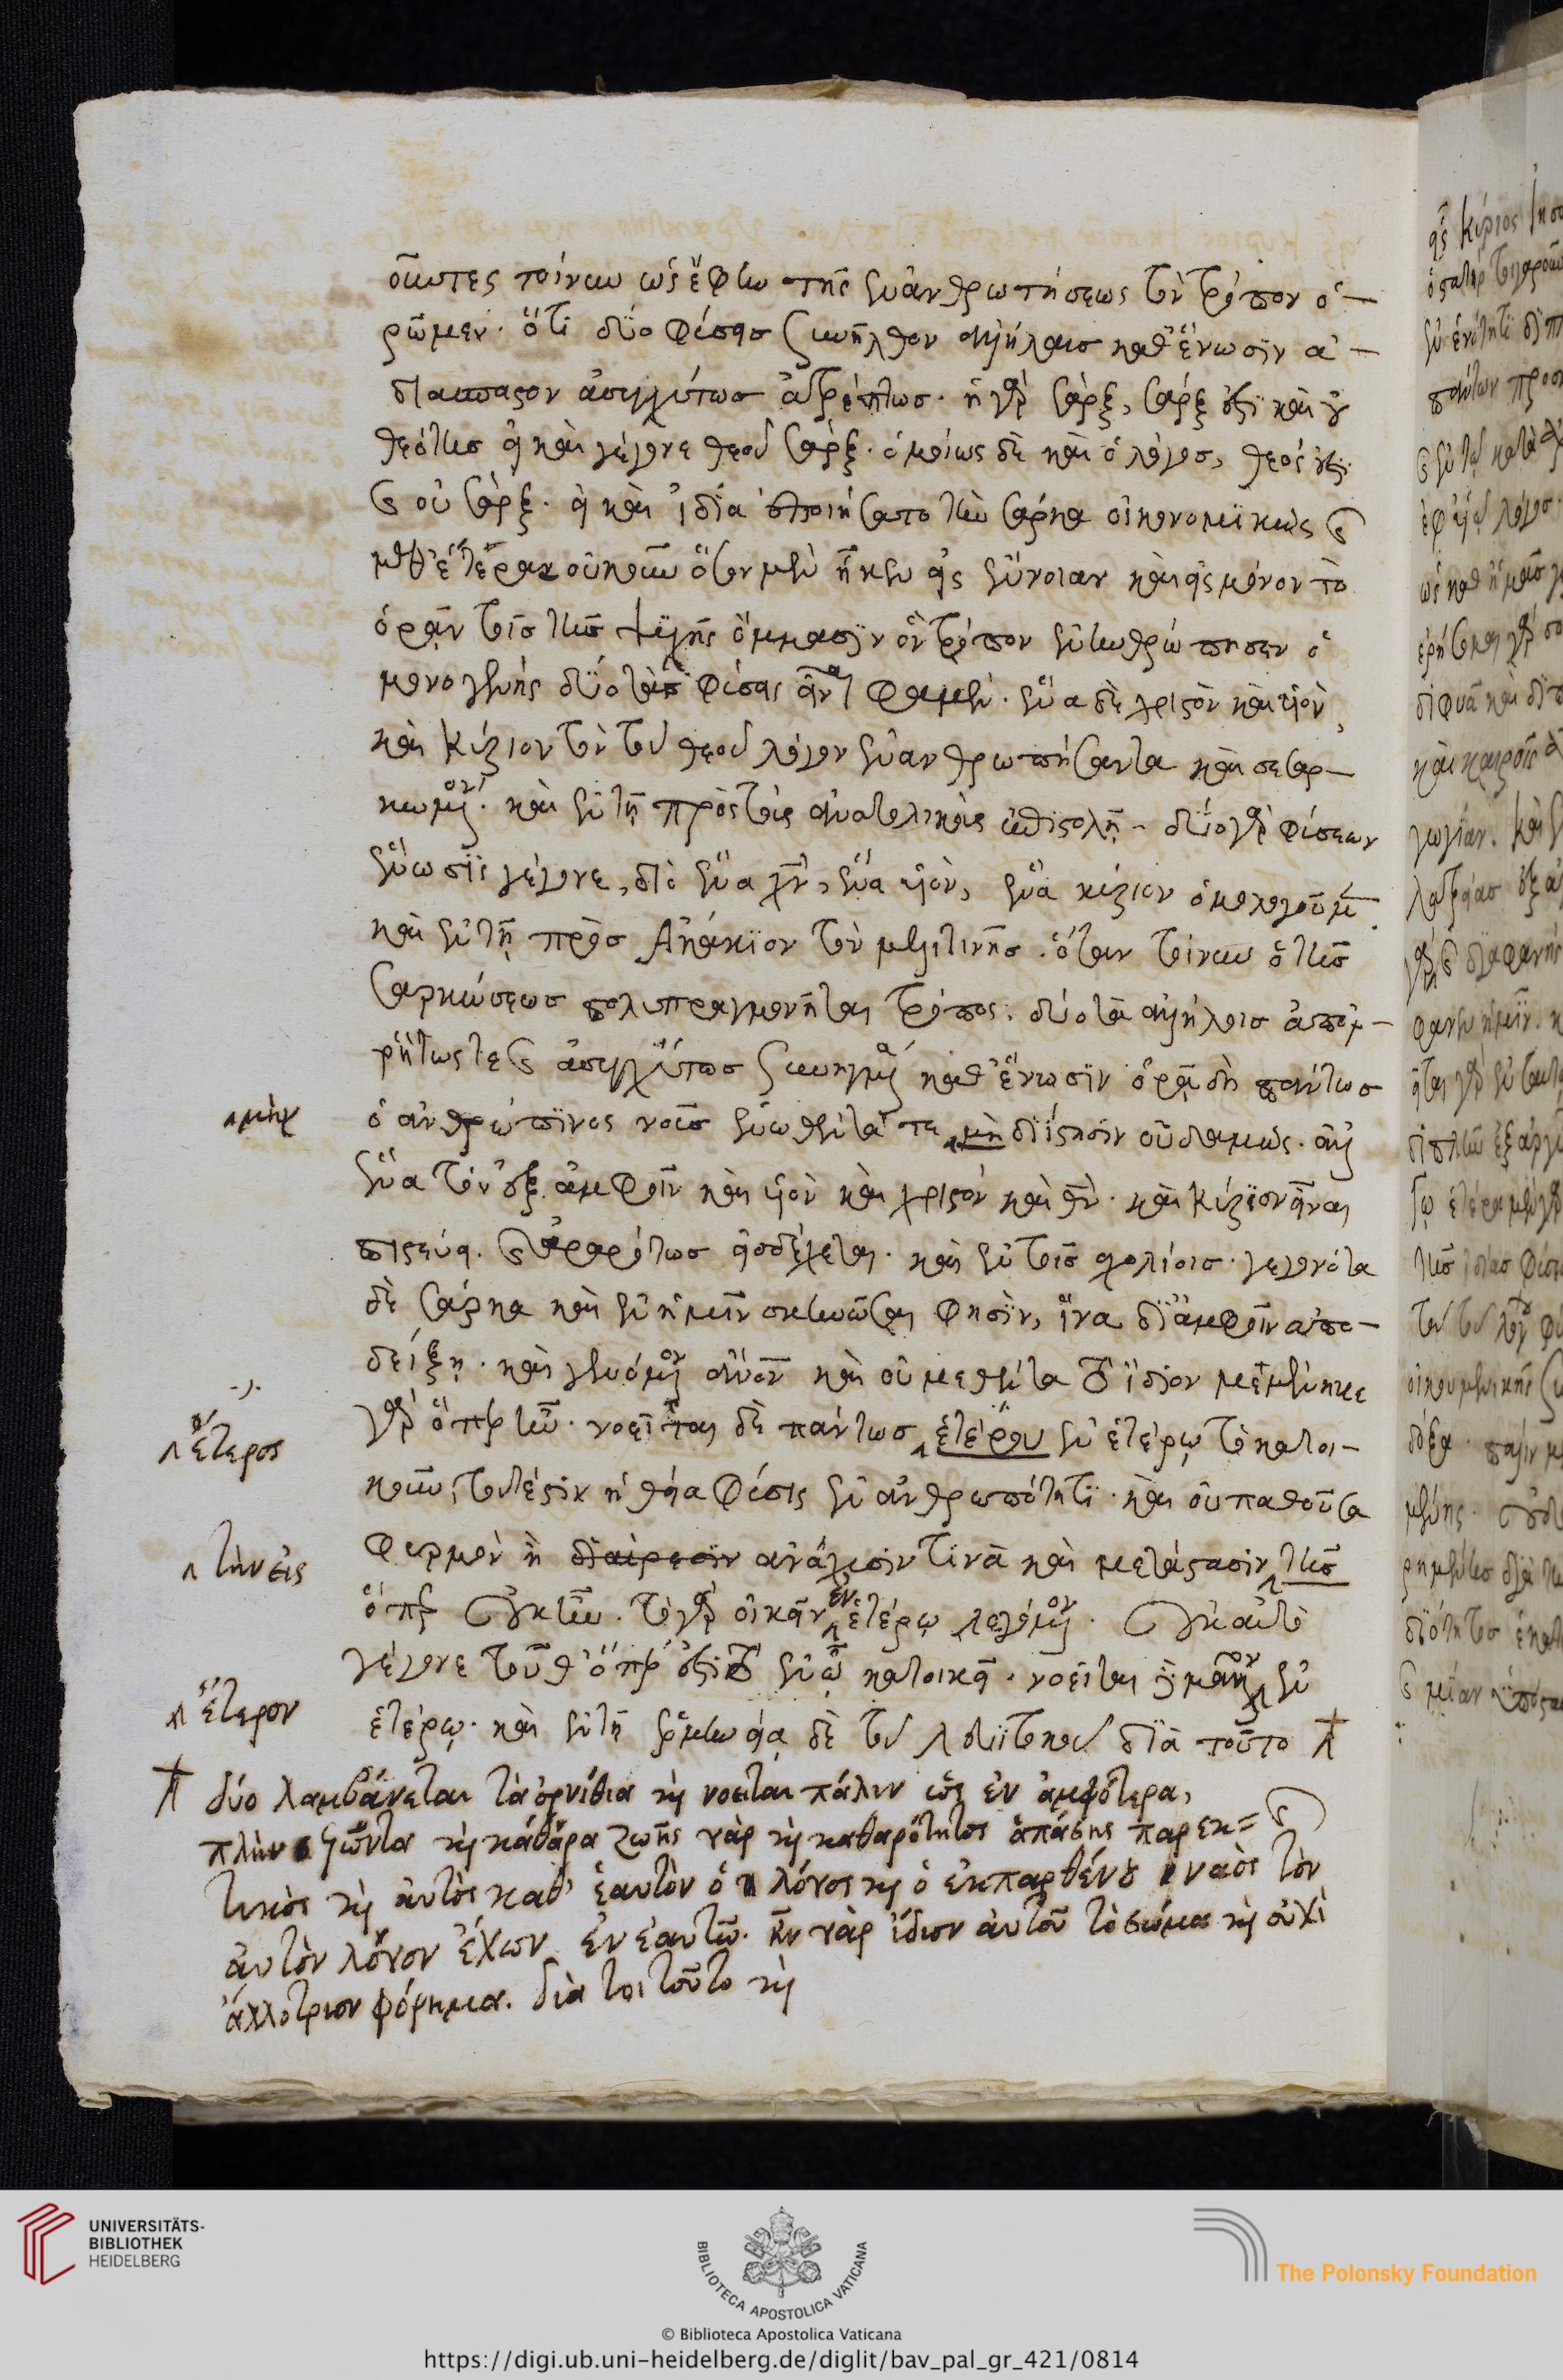 οῦντες τοίνυν ὡς ἔφην τῆς ἐνανθρωπήσεως τὸν τρόπον ὁ-
ρῶμεν· ὅτι δύο φύσεις συνῆλθον ἀλλήλαις καθ' ἕνωσιν ἀ-
διάσπαστον ἀσυγχύτως ἀτρέπτως· ἡ γὰρ σὰρξ, σάρξ ἐστι καὶ οὐ
θεότης εἰ καὶ γέγονε θεοῦ σάρξ· ὁμοίως δὲ καὶ ὁ λόγος, θεός ἐστι·
καὶ οὐ σάρξ· εἰ καὶ ἰδία ἐποιήσατο τὴν σάρκα οἰκονομικῶς καὶ
μεθ' ἕτερα οὐκοῦν ὅσον μὲν ἧκεν εἰς ἔννοιαν καὶ εἰς μόνον τὸ
ὁρᾶν τοῖς τῆς ψυχῆς ὄμμασιν ὃν τρόπον ἐνηνθρώπησεν ὁ
μονογενὴς δύο τὰς φύσεις εἶναι φαμέν· ἕνα δὲ χριστὸν καὶ υἱὸν,
καὶ κύριον τὸν τοῦ θεοῦ λόγον ἐνανθρωπήσαντα καὶ σεσαρ-
κωμένον· καὶ ἐν τῇ πρὸς τοὺς ἀνατολικοὺς ἐπιστολῇ - δύο γὰρ φύσεων
ἕνωσις γέγονε, διὸ ἕνα χν, ἕνα υἱὸν, ἕνα κύριον ὁμολογοῦμεν·
καὶ ἐν τῇ πρὸς Ἀκάκιον τὸν μελιτινῆς· ὅταν τοίνυν ὁ τῆς
σαρκώσεως πολυπραγμονῆται τρόπος· δύο τὰ ἀλλήλοις ἀπορ-
ρήτως τε καὶ ἀσυγχύτως συνηγμένα καθ' ἕνωσιν ὁρᾷ δὴ πάντως
ὁ ἀνθρώπινος νοῦς ἑνωθέντα τε μὴ διίστησιν οὐδαμῶς· ἀλλ'
ἕνα τὸν ἐξ ἀμφοῖν καὶ υἱὸν καὶ χριστόν καὶ θν· καὶ κύριον εἶναι
πιστεύει· καὶ ἀραρότως εἰσδέχεται· καὶ ἐν τοῖς σχολίοις· γεγονότα
δὲ σάρκα καὶ ἐν ἡμῖν σκηνῶσαι φησὶν, ἵνα δι' ἀμφοῖν ἀπο-
δείξῃ· καὶ γενόμενον ἀνον καὶ οὐ μεθέντα τὸ ἴδιον μεμένηκε
γὰρ ὅπερ ἦν· νοεῖται δὲ πάντως ἑτέρου ἐν ἑτέρῳ τὸ κατοι-
κοῦν, τουτέστιν ἡ θεία φύσις ἐν ἀνθρωπότητι· καὶ οὐ παθοῦσα
φυρμὸν ἢ διαίρεσιν ἀνάχυσίν τινα καὶ μετάστασιν τῆς
ὅπερ οὐκ ἦν· τὸ γὰρ οἰκεῖν ἐν ἑτέρῳ λεγόμενον· οὐκ αὐτὸ
γέγονε τοῦθ' ὅπερ ἐστὶ τὸ ἐν ᾧ κατοικεῖ· νοεῖται δὲ μᾶλλον ἐν
ἑτέρῳ· καὶ ἐν τῇ ἑρμηνείᾳ δὲ τοῦ λευιτικοῦ διὰ τοῦτο
μὴν
ἕτερος
τὴν εἰς
ἕτερον
δύο λαμβάνεται τὰ ὀρνίθια καὶ νοεῖται πάλιν ὡς ἐν ἀμφότερα,
πλὴν ζῶντα καὶ καθαρὰ ζωῆς γὰρ καὶ καθαρότητος ἁπάσης παρεκ=
τικὸς καὶ αὐτὸς καθ' ἑαυτὸν ὁ λόγος καὶ ὁ ἐκ παρθένου ναὸς τὸν
αὐτὸν λόγον ἔχων ἐν ἑαυτῶ. ἦν γὰρ ἴδιον αὐτοῦ τὸ σῶμα καὶ οὐχὶ
ἀλλότριον φόρημα. διὰ τοι τοῦτο καὶ
UNIVERSITÄTS-
BIBLIOTHEK
HEIDELBERG
BIBLIOTECA APOSTOLICA VATICANA
The Polonsky Foundation
© Biblioteca Apostolica Vaticana
https://digi.ub.uni-heidelberg.de/diglit/bav_pal_gr_421/0814